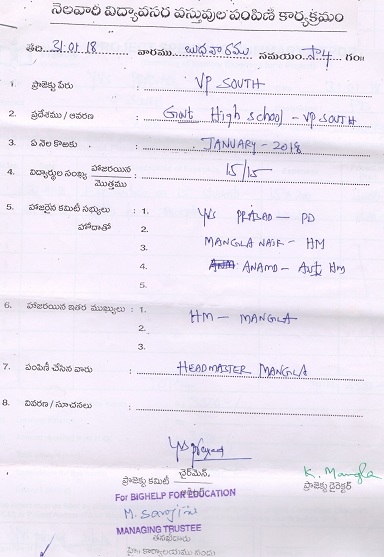 నెలవారి విద్యావసర వస్తువుల పంపిణి కార్యక్రమం
తేది. 31.01.18 వారము బుధవారము సమయం. సా.4 గం॥
1. ప్రాజెక్టు పేరు : VP SOUTH
2. ప్రదేశము / ఆవరణ : Govt High School - VP SOUTH
3. ఏ నెల కొఱకు : JANUARY - 2018
4. విద్యార్థుల సంఖ్య హాజరయిన / మొత్తము : 15/15
5. హాజరైన కమిటీ సభ్యులు : 1. YVS PRASAD - PD
హోదాతో 2.
3. MANGLA NAIK - HM
4. ANAND - HM
5.
6. హాజరయిన ఇతర ముఖ్యులు : 1. HM - MANGLA
2.
3.
7. పంపిణీ చేసిన వారు : HEADMASTER MANGLA
8. వివరణ / సూచనలు :
YVS Prasad
K. Mangla
ప్రాజెక్టు కమిటీ చైర్‌మెన్.
ప్రాజెక్టు డైరెక్టర్
For BIGHELP FOR EDUCATION
M. Sarojini
MANAGING TRUSTEE